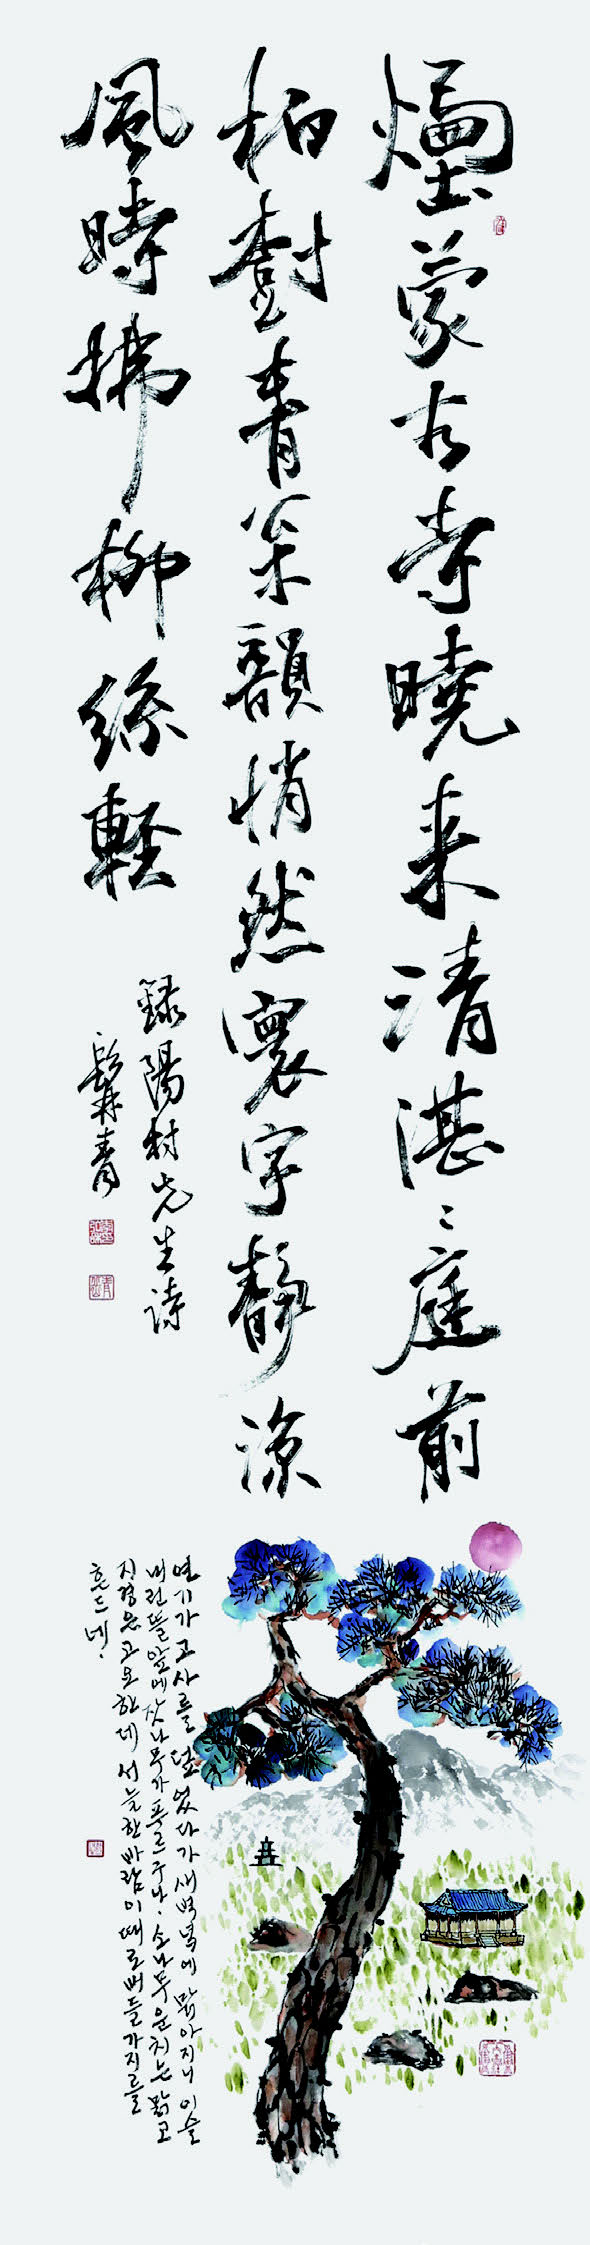 煙蒙古寺曉来清湛〻庭前
柏樹青枀韻悄然寰宇靜涼
風時拂柳絲輕
錄陽村先生詩
青
연기가 고사를 덮었다가 새벽녘에 맑아지니 이슬
내린 뜰 앞에 잣나무가 푸르구나. 소나무 운치는 맑고
지경은 고요한데 서늘한 바람이 때로 버들가지를
흔드네.